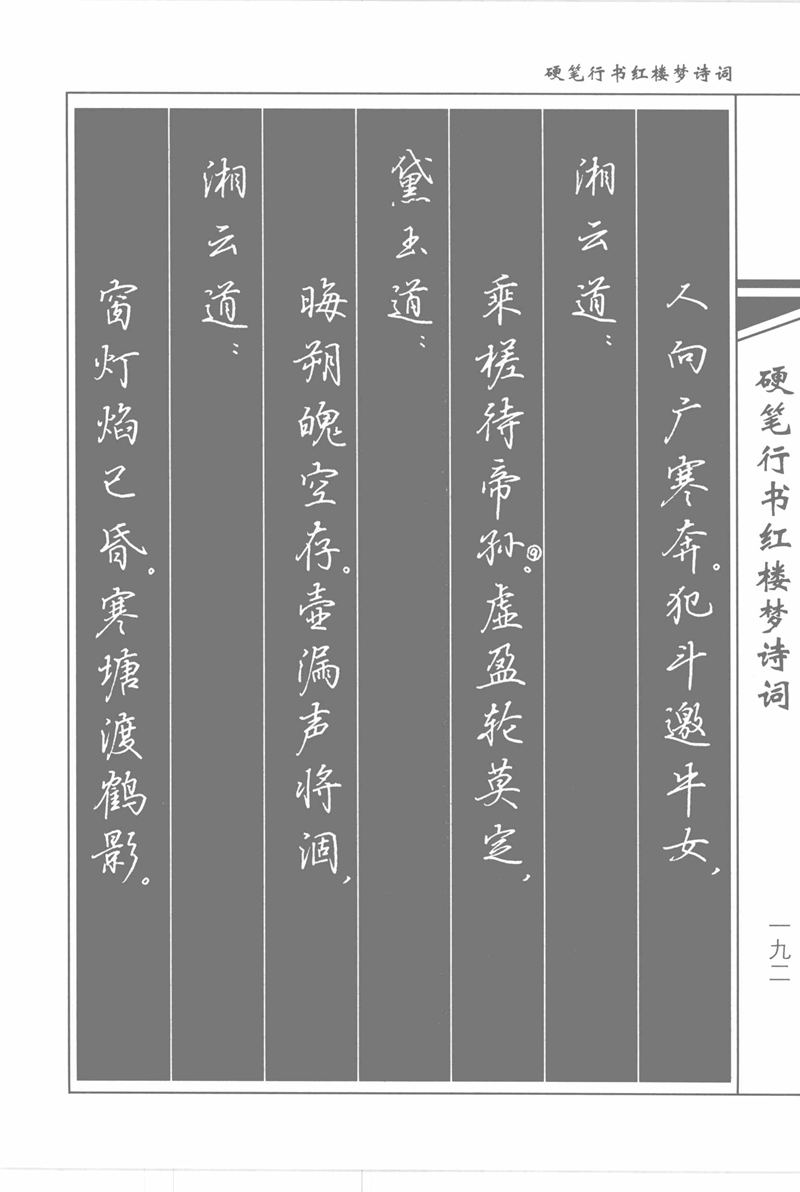 硬笔行书红楼梦诗词
人向广寒奔。犯斗邀牛女，
湘云道：
乘槎待帝孙⑨。虚盈轮莫定，
黛玉道：
晦朔魄空存。壶漏声将涸，
湘云道：
窗灯焰已昏。寒塘渡鹤影。
硬笔行书红楼梦诗词
一九二